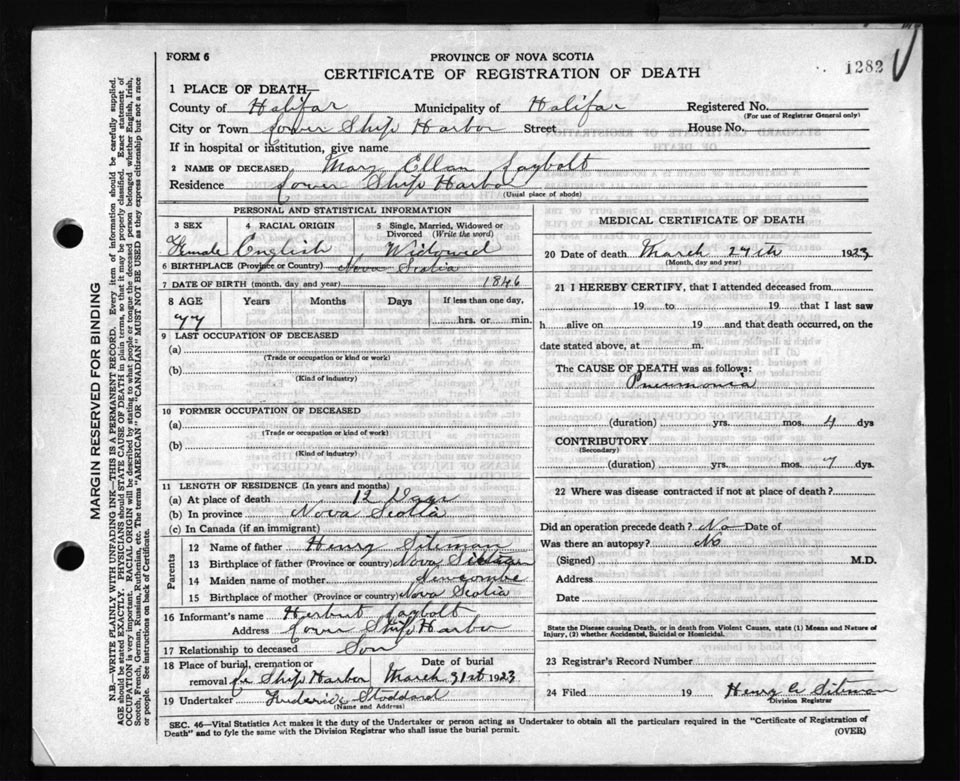 FORM 6
PROVINCE OF NOVA SCOTIA
CERTIFICATE OF REGISTRATION OF DEATH
1282
1 PLACE OF DEATH
County of Halifax Municipality of Halifax Registered No.
(For use of Registrar General only)
City or Town Lower Ship Harbor Street House No.
If in hospital or institution, give name
2 NAME OF DECEASED Mary Ellan Laybolt
Residence Lower Ship Harbor
(Usual place of abode)
PERSONAL AND STATISTICAL INFORMATION
3 SEX 4 RACIAL ORIGIN 5 Single, Married, Widowed or Divorced (Write the word)
Female English Widowed
6 BIRTHPLACE (Province or Country) Nova Scotia
7 DATE OF BIRTH (month, day, and year) 1846
8 AGE Years Months Days If less than one day,
77 hrs. or min.
9 LAST OCCUPATION OF DECEASED
(a)
(Trade or occupation or kind or work)
(b)
(Kind of industry)
10 FORMER OCCUPATION OF DECEASED
(a)
(Trade or occupation or kind of work)
(b)
(Kind of industry)
11 LENGTH OF RESIDENCE (In years and months)
(a) At place of death 12 Days
(b) In province Nova Scotia
(c) In Canada (if an immigrant)
Parents
12 Name of father Henry Siteman
13 Birthplace of father (Province or country) Nova Scotia
14 Maiden name of mother Newcombe
15 Birthplace of mother (Province or country) Nova Scotia
16 Informant's name Herbert Laybolt
Address Lower Ship Harbor
17 Relationship to deceased Son
18 Place of burial, cremation or removal Ship Harbor Date of burial March 31st 1923
19 Undertaker Frederick Stoddard
(Name and Address)
MEDICAL CERTIFICATE OF DEATH
20 Date of death March 27th 1923
(Month, day and year)
21 I HEREBY CERTIFY, that I attended deceased from
19 to 19 that I last saw
h alive on 19 and that death occurred, on the
date stated above, at m.
The CAUSE OF DEATH was as follows:
Pneumonia
(duration) yrs. mos. 4 dys
CONTRIBUTORY
(Secondary)
(duration) yrs. mos. 7 dys.
22 Where was disease contracted if not at place of death?
Did an operation precede death? No Date of
Was there an autopsy? No
(Signed) M.D.
Address
Date
State the Disease causing Death, or in death from Violent Causes, state (1) Means and Nature of Injury, (2) whether Accidental, Suicidal or Homicidal.
23 Registrar's Record Number
24 Filed 19 Henry A Siteman
Division Registrar
SEC. 46—Vital Statistics Act makes it the duty of the Undertaker or person acting as Undertaker to obtain all the particulars required in the "Certificate of Registration of
Death" and to fyle the same with the Division Registrar who shall issue the burial permit.
(OVER)
MARGIN RESERVED FOR BINDING
N.B.—WRITE PLAINLY WITH UNFADING INK—THIS IS A PERMANENT RECORD. Every item of information should be carefully supplied.
AGE should be stated EXACTLY. PHYSICIANS should STATE CAUSE OF DEATH in plain terms, so that it may be properly classified. Exact statement of
OCCUPATION is very important. RACIAL ORIGIN will be described by stating to what people or tongue the deceased person belonged whether English, Irish,
Scotch, French, German, Russian, Ruthenian, etc. The terms "AMERICAN" or "CANADIAN" MUST NOT BE USED as they express citizenship but not a race
or people. See instructions on back of Certificate.